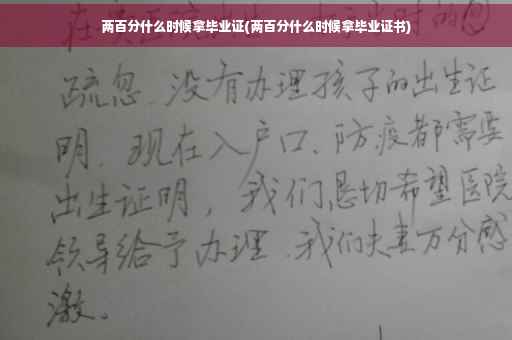 两百分什么时候拿毕业证(两百分什么时候拿毕业证书)
疏忽、没有办理孩子的出生证
明、现在入户口、防疫都需要
出生证明，我们恳切希望医院
领导给予办理、我们夫妻万分感
激。